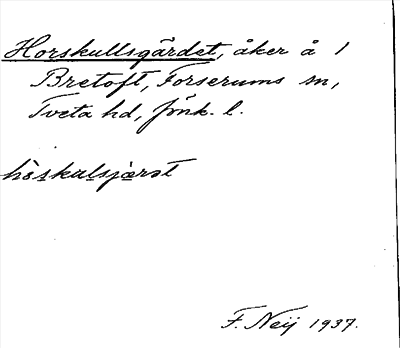 Horskullsgärdet, åker å 1
Bretoft, Forserums sn,
Tveta hd, Jönk. l.
hòskulsjærət
F. Neij 1937.